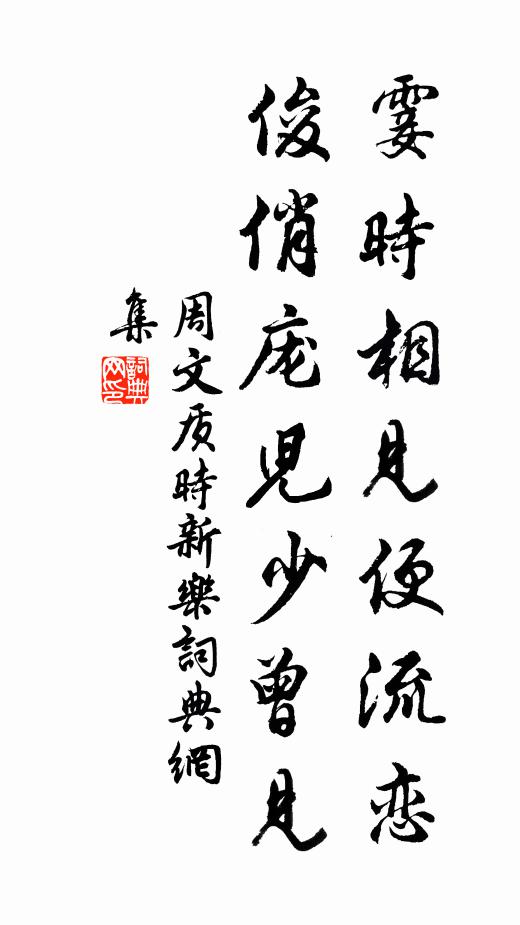 霎時相見便流恋
俊俏庞兒少曾見
周文质時新樂詞典網
集
詞典網印